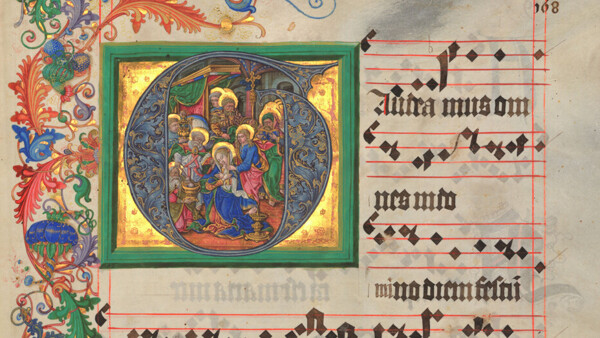 168
GAudea mus om
nes in do
mino diem festū